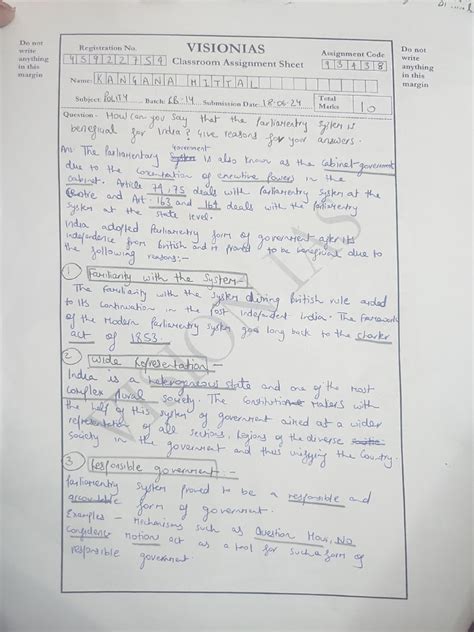 VISIONIAS
Registration No. Classroom Assignment Sheet Assignment Code
45922754 93438
Name: KANGANA MITTAL
Subject: Polity Batch: Submission Date 18-06-24 Total Marks 10
Do not write anything in this margin
Do not write anything in this margin
Question - How can you say that the Parliamentry System is
benefical for India? Give reasons for your answers.
Ans: The Parliamentary government is also known as the Cabinet-government
due to the concentration of executive Powers in the
cabinet. Article 74,75 deals with Parliamentry System at the
Centre and Art- 163 and 164 deals with the Parliamentry
System at the State level.
India adopted Parliamentry form of government after its
independence from british and it proved to be benefical due to
the following reasons:-
1 Familiarity with the System-
The familiarity with the System during British rule added
to its Continuation in the Post independent India. The framework
of the Modern Parliamentry System goes long back to the charter
act of 1853.
2 Wide Representation-
India is a heterogenous state and one of the most
complex plural society. The Constitution Makers with
the help of this system of government aimed at a wider
representation of all sections, regions of the diverse
Society in the government and thus unifying the Country.
3 Responsible government:-
Parliamentry System proved to be a responsible and
accountable form of government.
Examples - Mechanisms such as Question Hour, No
Confidence motion act as a tool for such a form of
responsible government.
VISION IAS